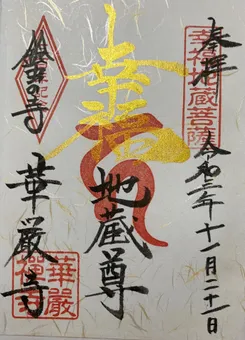 奉拝
令和二年十一月二十一日
幸福地蔵菩薩
幸福
地蔵尊
鈴虫の寺
華厳寺
華嚴禪寺